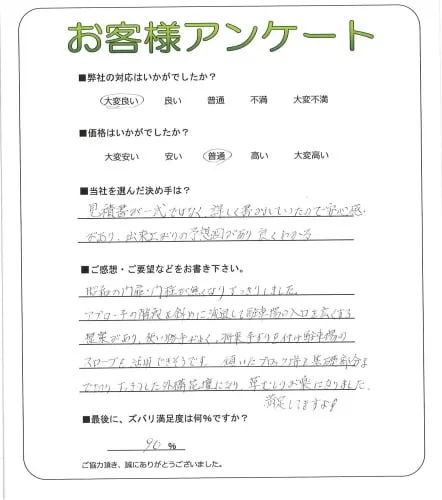 お客様アンケート
■弊社の対応はいかがでしたか?
大変良い 良い 普通 不満 大変不満
■価格はいかがでしたか?
大変安い 安い 普通 高い 大変高い
■当社を選んだ決め手は?
見積書が一式ではなく、詳しく書かれていたので安心感
があり、出来上がりの予想図があり良くわかる
■ご感想・ご要望などをお書き下さい。
昭和の門扉・門柱が無くなりすっきりしました。
アプローチの階段を斜めに減退して駐車場の入口を広くする
提案があり、使い勝手がよく、将来手すりを付け駐車場の
スロープも活用できそうです。傾いたブロック塀も基礎部分ま
でさわりすっきりした外構花壇になり、草むしりが楽になりました。
満足してますよ
■最後に、ズバリ満足度は何%ですか?
90 %
ご協力頂き、誠にありがとうございました。